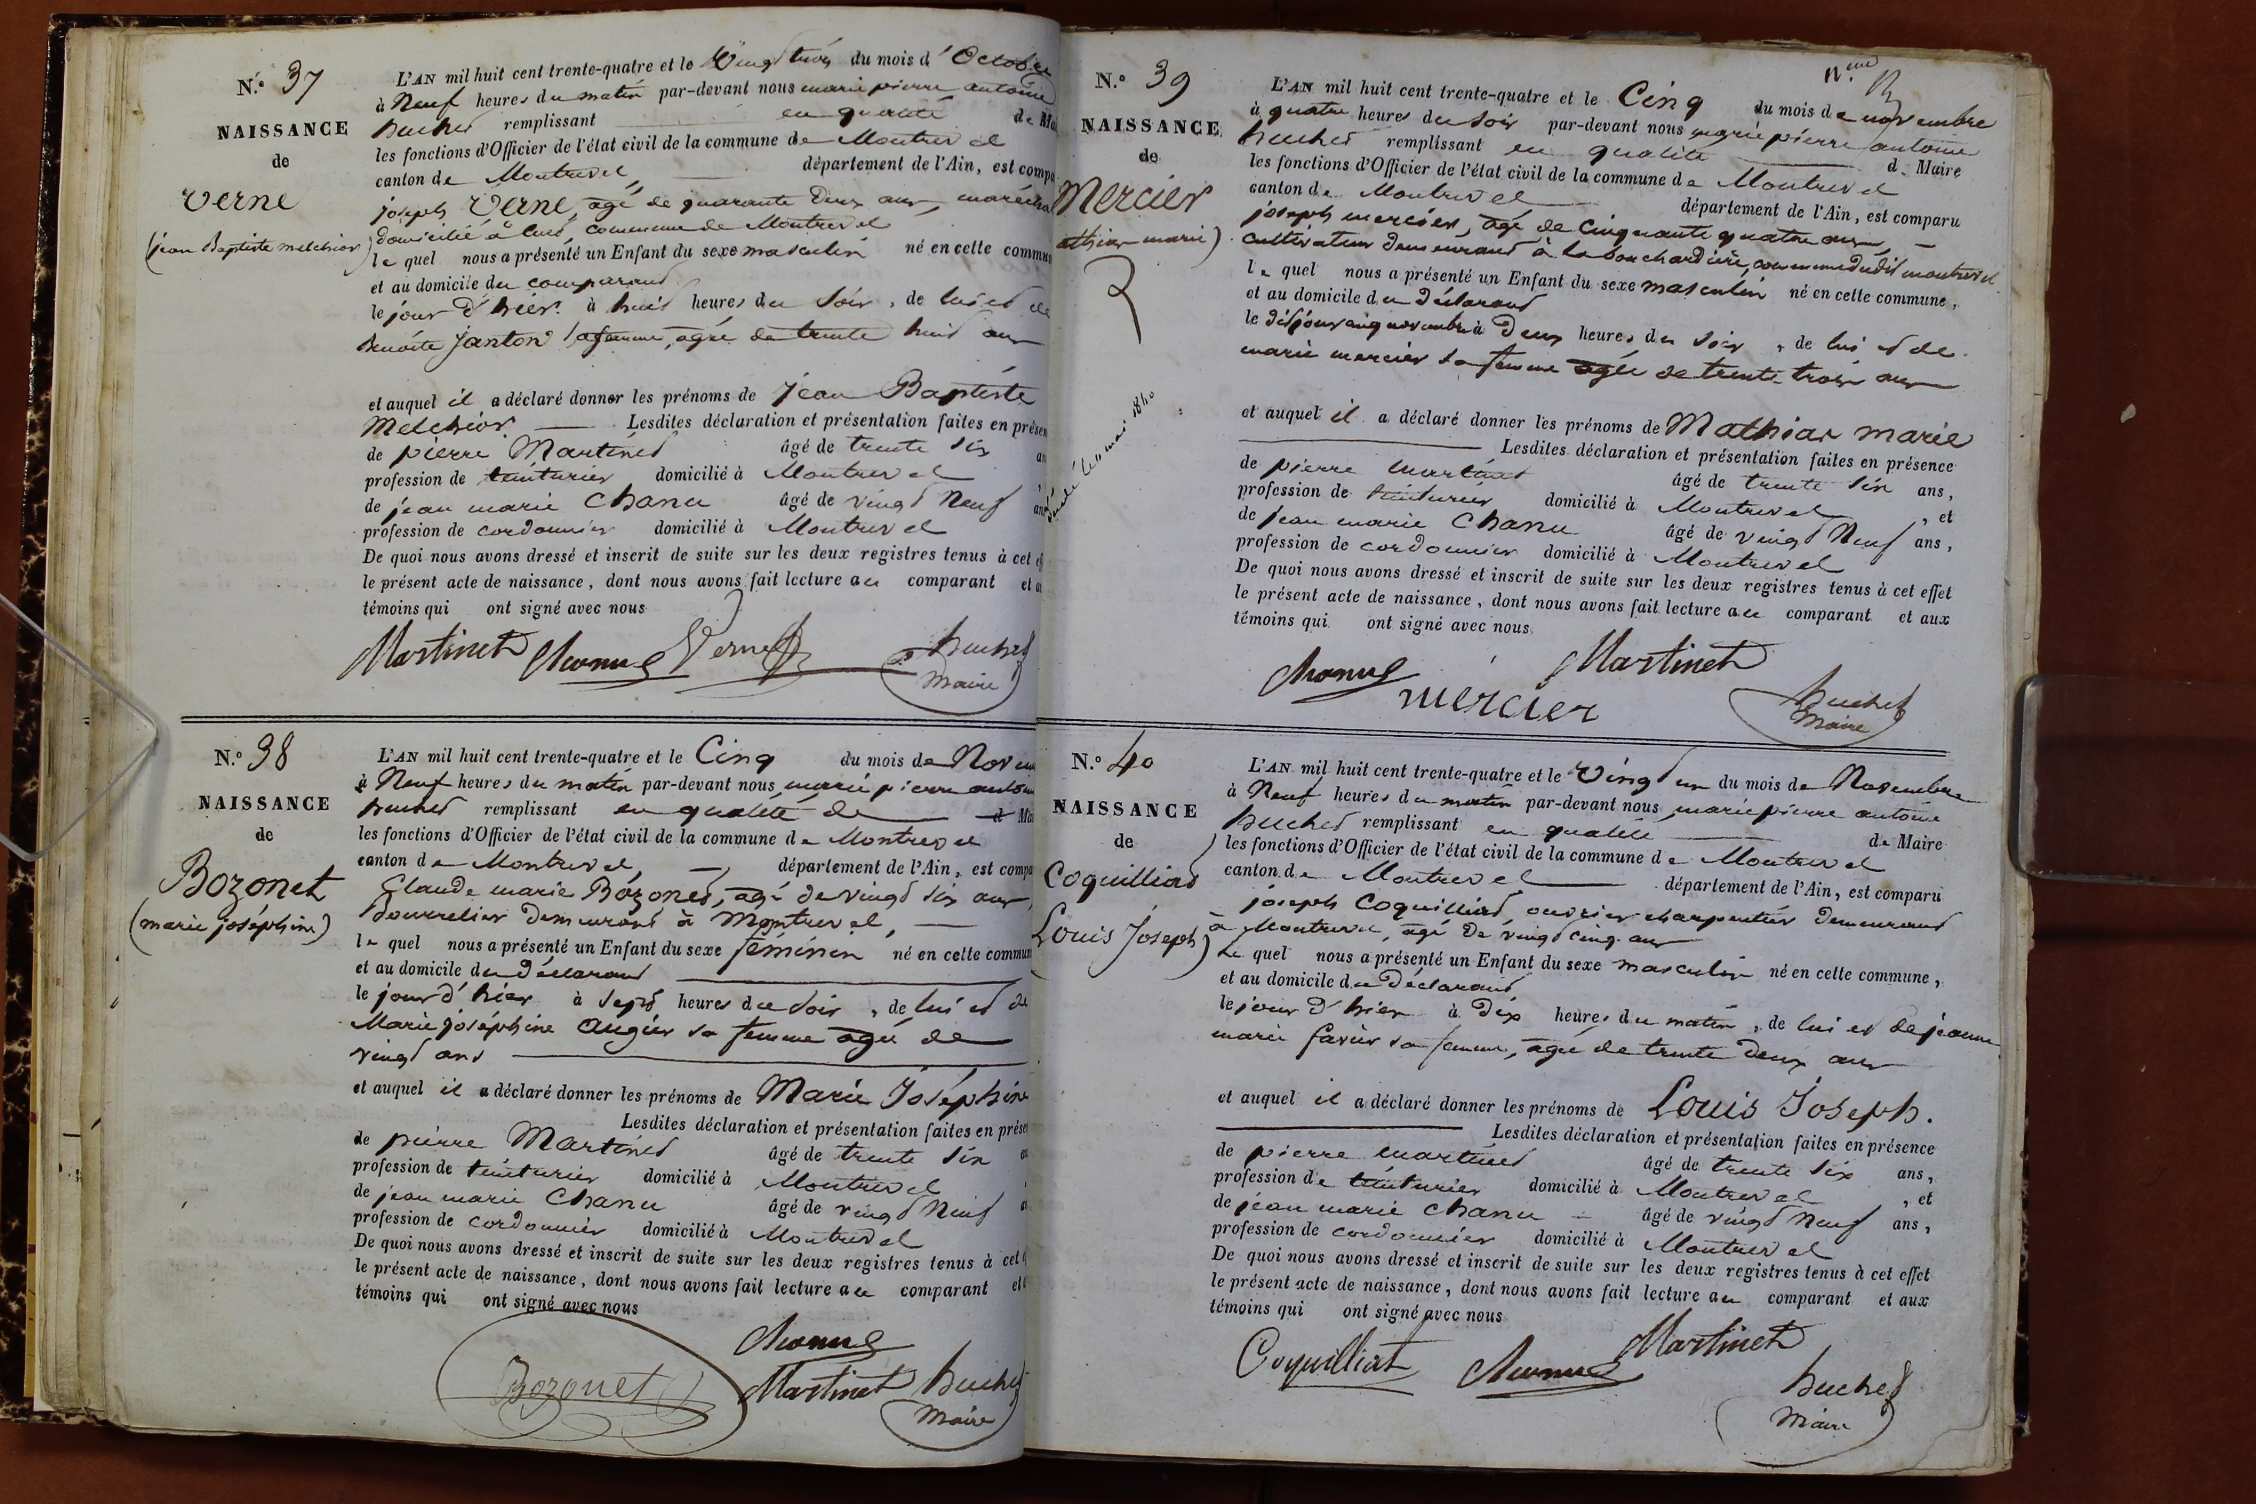 N.° 37
NAISSANCE
de
Verne
(jean Baptiste melchior)
L'AN mil huit cent trente-quatre et le Vingt trois du mois d'Octobre
à Neuf heures du matin par-devant nous marie pierre antoine
huchet remplissant en qualité de Mai
les fonctions d'Officier de l'état civil de la commune de Montrevel
canton de Montrevel, département de l'Ain, est compa
joseph Verne, agé de quarante deux ans, maréchal
domicilié à commune de Montrevel
lequel nous a présenté un Enfant du sexe masculin né en cette commun
et au domicile du comparant
le jour d'hier à huit heures du soir, de lui et de
Benoite janton sa femme, agée de trente huit ans
et auquel il a déclaré donner les prénoms de jean Baptiste
Melchior Lesdites déclaration et présentation faites en présen
de pierre Martinet âgé de trente six an
profession de teinturier domicilié à Montrevel,
de jean marie Chanu âgé de vingt Neuf ans
profession de cordonnier domicilié à Montrevel
De quoi nous avons dressé et inscrit de suite sur les deux registres tenus à cet ef
le présent acte de naissance, dont nous avons fait lecture au comparant et au
témoins qui ont signé avec nous
Martinet Chanu Verne huchet
Maire
N.° 38
NAISSANCE
de
Bozonet
(marie joséphine)
L'AN mil huit cent trente-quatre et le Cinq du mois de Novem
à Neuf heures du matin par-devant nous marie pierre antoin
huchet remplissant en qualité de d Mai
les fonctions d'Officier de l'état civil de la commune de Montrevel
canton de Montrevel, département de l'Ain, est compa
Claude marie Bozonet, agé de vingt six ans,
Bourrelier demeurant à Montrevel,
lequel nous a présenté un Enfant du sexe féminin né en cette commun
et au domicile du Déclarant
le jour d'hier à sept heures du soir, de lui et de
Marie joséphine Augier sa femme agée de
vingt ans
et auquel il a déclaré donner les prénoms de Marie Joséphine
Lesdites déclaration et présentation faites en prése
de pierre Martinet âgé de trente six an
profession de teinturier domicilié à Montrevel,
de jean marie Chanu âgé de vingt Neuf a
profession de cordonnier domicilié à Montrevel
De quoi nous avons dressé et inscrit de suite sur les deux registres tenus à cet e
le présent acte de naissance, dont nous avons fait lecture au comparant et
témoins qui ont signé avec nous
Chanu
Bozonet Martinet huchet
Maire
N.° 39
NAISSANCE
de
Mercier
athias marie)
1840
L'AN mil huit cent trente-quatre et le Cinq du mois de novembre
à quatre heures du soir par-devant nous marie pierre antoine
huchet remplissant en qualité d. Maire
les fonctions d'Officier de l'état civil de la commune de Montrevel
canton de Montrevel département de l'Ain, est comparu
joseph mercier, agé de cinquante quatre ans,
cultivateur demeurant à la bouchardière, commune dudit montrevel
lequel nous a présenté un Enfant du sexe masculin né en cette commune,
et au domicile du déclarant
le dit jour cinq novembre à Deux heures du soir, de lui et de
marie mercier sa femme agée de trente trois ans
et auquel il a déclaré donner les prénoms de Mathias marie
Lesdites déclaration et présentation faites en présence
de pierre martinet âgé de trente six ans,
profession de teinturier domicilié à Montrevel, et
de jean marie Chanu âgé de vingt Neuf ans,
profession de cordonnier domicilié à Montrevel
De quoi nous avons dressé et inscrit de suite sur les deux registres tenus à cet effet
le présent acte de naissance, dont nous avons fait lecture au comparant et aux
témoins qui ont signé avec nous
Chanu Martinet
mercier huchet
Maire
N.° 40
NAISSANCE
de
Coquilliat
(Louis Joseph)
L'AN mil huit cent trente-quatre et le Vingt un du mois de Novembre
à Neuf heures du matin par-devant nous marie pierre antoine
huchet remplissant en qualité de Maire
les fonctions d'Officier de l'état civil de la commune de Montrevel
canton de Montrevel département de l'Ain, est comparu
joseph Coquilliat, ouvrier charpentier demeurant
à Montrevel, agé de vingt cinq ans
Lequel nous a présenté un Enfant du sexe masculin né en cette commune,
et au domicile du Déclarant
le jour d'hier à Dix heures du matin, de lui et de jeanne
marie favier sa femme, agée de trente deux ans
et auquel il a déclaré donner les prénoms de Louis Joseph.
Lesdites déclaration et présentation faites en présence
de pierre martinet âgé de trente six ans,
profession de teinturier domicilié à Montrevel, et
de jean marie chanu âgé de vingt Neuf ans,
profession de cordonnier domicilié à Montrevel
De quoi nous avons dressé et inscrit de suite sur les deux registres tenus à cet effet
le présent acte de naissance, dont nous avons fait lecture au comparant et aux
témoins qui ont signé avec nous
Coquilliat Chanu Martinet
huchet
Maire